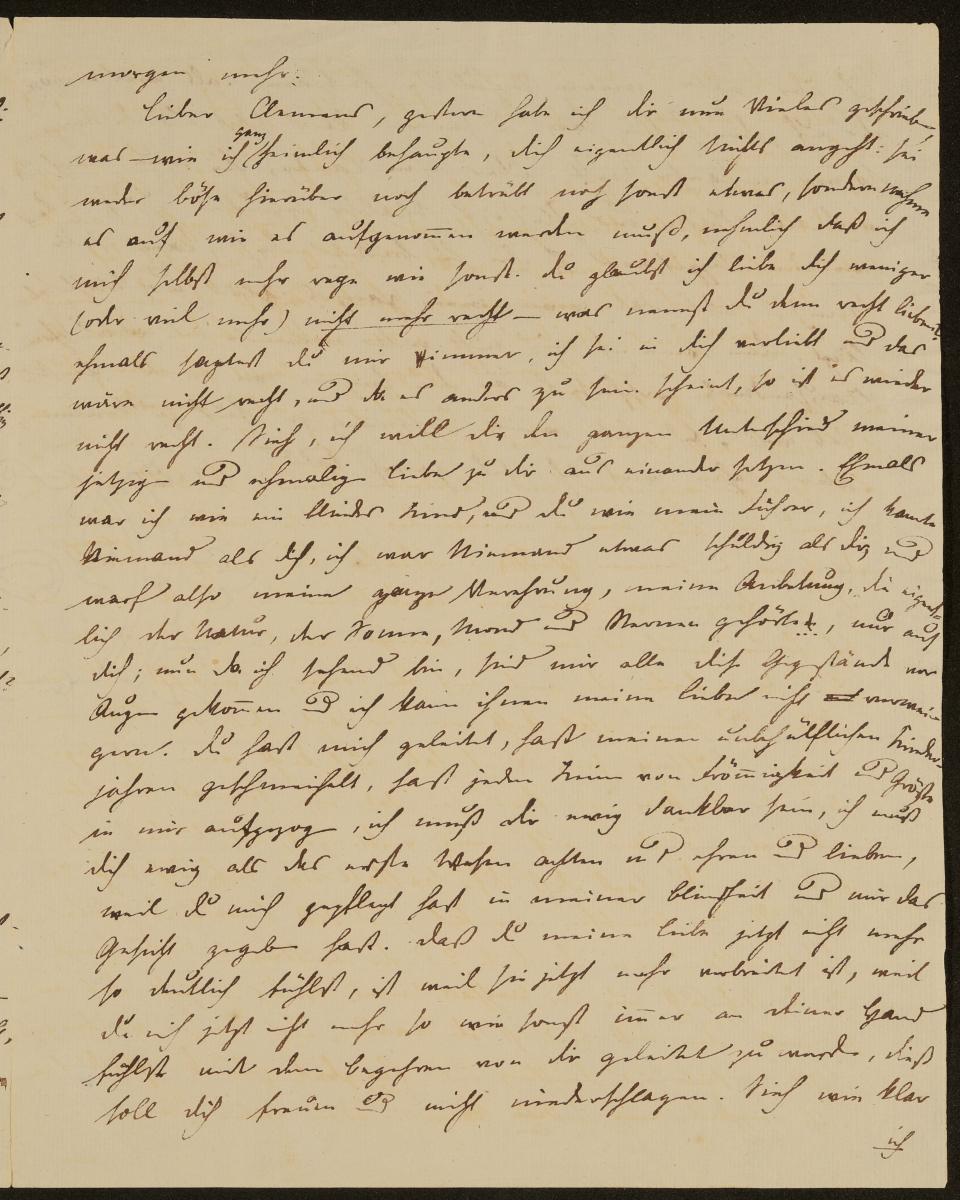 morgen mehr.
Lieber Clemens, gestern habe ich dir nun Vieles geschrieben
was — wie ich ganz heimlich behaupte, dich eigentlich nichts angeht: sei
weder böse hierüber noch betrübt noch sonst etwas, sondern nehme
es auf wie es aufgenommen werden muß, nehmlich daß ich
mich selbst mehr rege wie sonst. du glaubst ich liebe dich weniger
(oder viel mehr) nicht mehr recht — was nennst du denn recht lieben?
ehmals sagtest du mir immer, ich sei in dich verliebt und das
wäre nicht recht, und da es anders zu sein scheint, so ist es wieder
nicht recht. Sieh, ich will dir den ganzen Unterschied meiner
jetzigen und ehmaligen Liebe zu dir aus einander setzen. Ehmals
war ich wie ein blindes Kind, und du wie mein Führer, ich kante
Niemand als dich, ich war Niemand etwas schuldig als dir und
warf also meine ganze Verehrung, meine Anbetung, die eigent-
lich der Natur, der Sonne, Mond und Sternen gehörte, nur auf
dich; nun da ich sehend bin, sind mir alle diese Gegenstände vor
Augen gekommen und ich kann ihnen meine Liebe nicht verwei-
gern. du hast mich geleitet, hast meinen unbehülflichen Kinder-
jahren geschmeichelt, hast jeden Keim von Frömmigkeit und Größe
in mir aufgezogen, ich muß dir ewig dankbar sein, ich muß
dich ewig als das erste Wesen achten und ehren und lieben,
weil du mich gepflegt hast in meiner blindheit und mir das
Gesicht gegeben hast. daß du meine Liebe jetzt nicht mehr
so deutlich fühlst, ist weil sie jetzt mehr verbreitet ist, weil
du mich jetzt nicht mehr so wie sonst immer an deiner Hand
fühlst mit dem begehren von dir geleitet zu werden, dieß
soll dich freuen und nicht niederschlagen. Sieh wie klar
ich